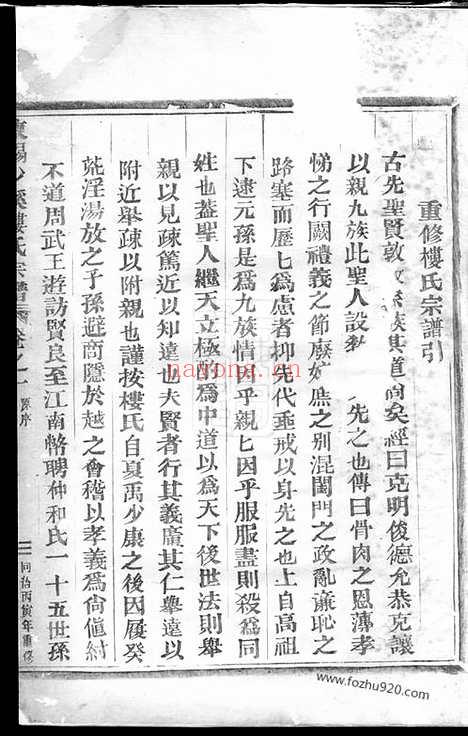 重修樓氏宗譜引
古先聖賢敦族其道尚矣經曰克明俊德允恭克讓
以親九族此聖人設教先之也傳曰骨肉之恩薄孝
悌之行闕禮義之節廢嫡庶之別混閨門之政亂廉恥之
路塞而歷匕為慮者抑先代垂戒以身先之也上自高祖
下逮元孫是爲九族情因乎親匕因乎服服盡則殺爲同
姓也蓋聖人繼天立極的為中道以爲天下後世法則舉
親以見疎篤近以知遠也夫賢者行其義廣其仁舉遠以
附近舉疎以附親也謹按樓氏自夏禹少康之後因履癸
荒淫湯放之子孫避商隱於越之會稽以孝義爲尚傎紂
不道周武王遊訪賢良至江南幣聘仲和氏一十五世孫
溪樓氏宗譜
卷之一
原序
同治丙寅年重修
nayona.cn
www.fozhu920.com